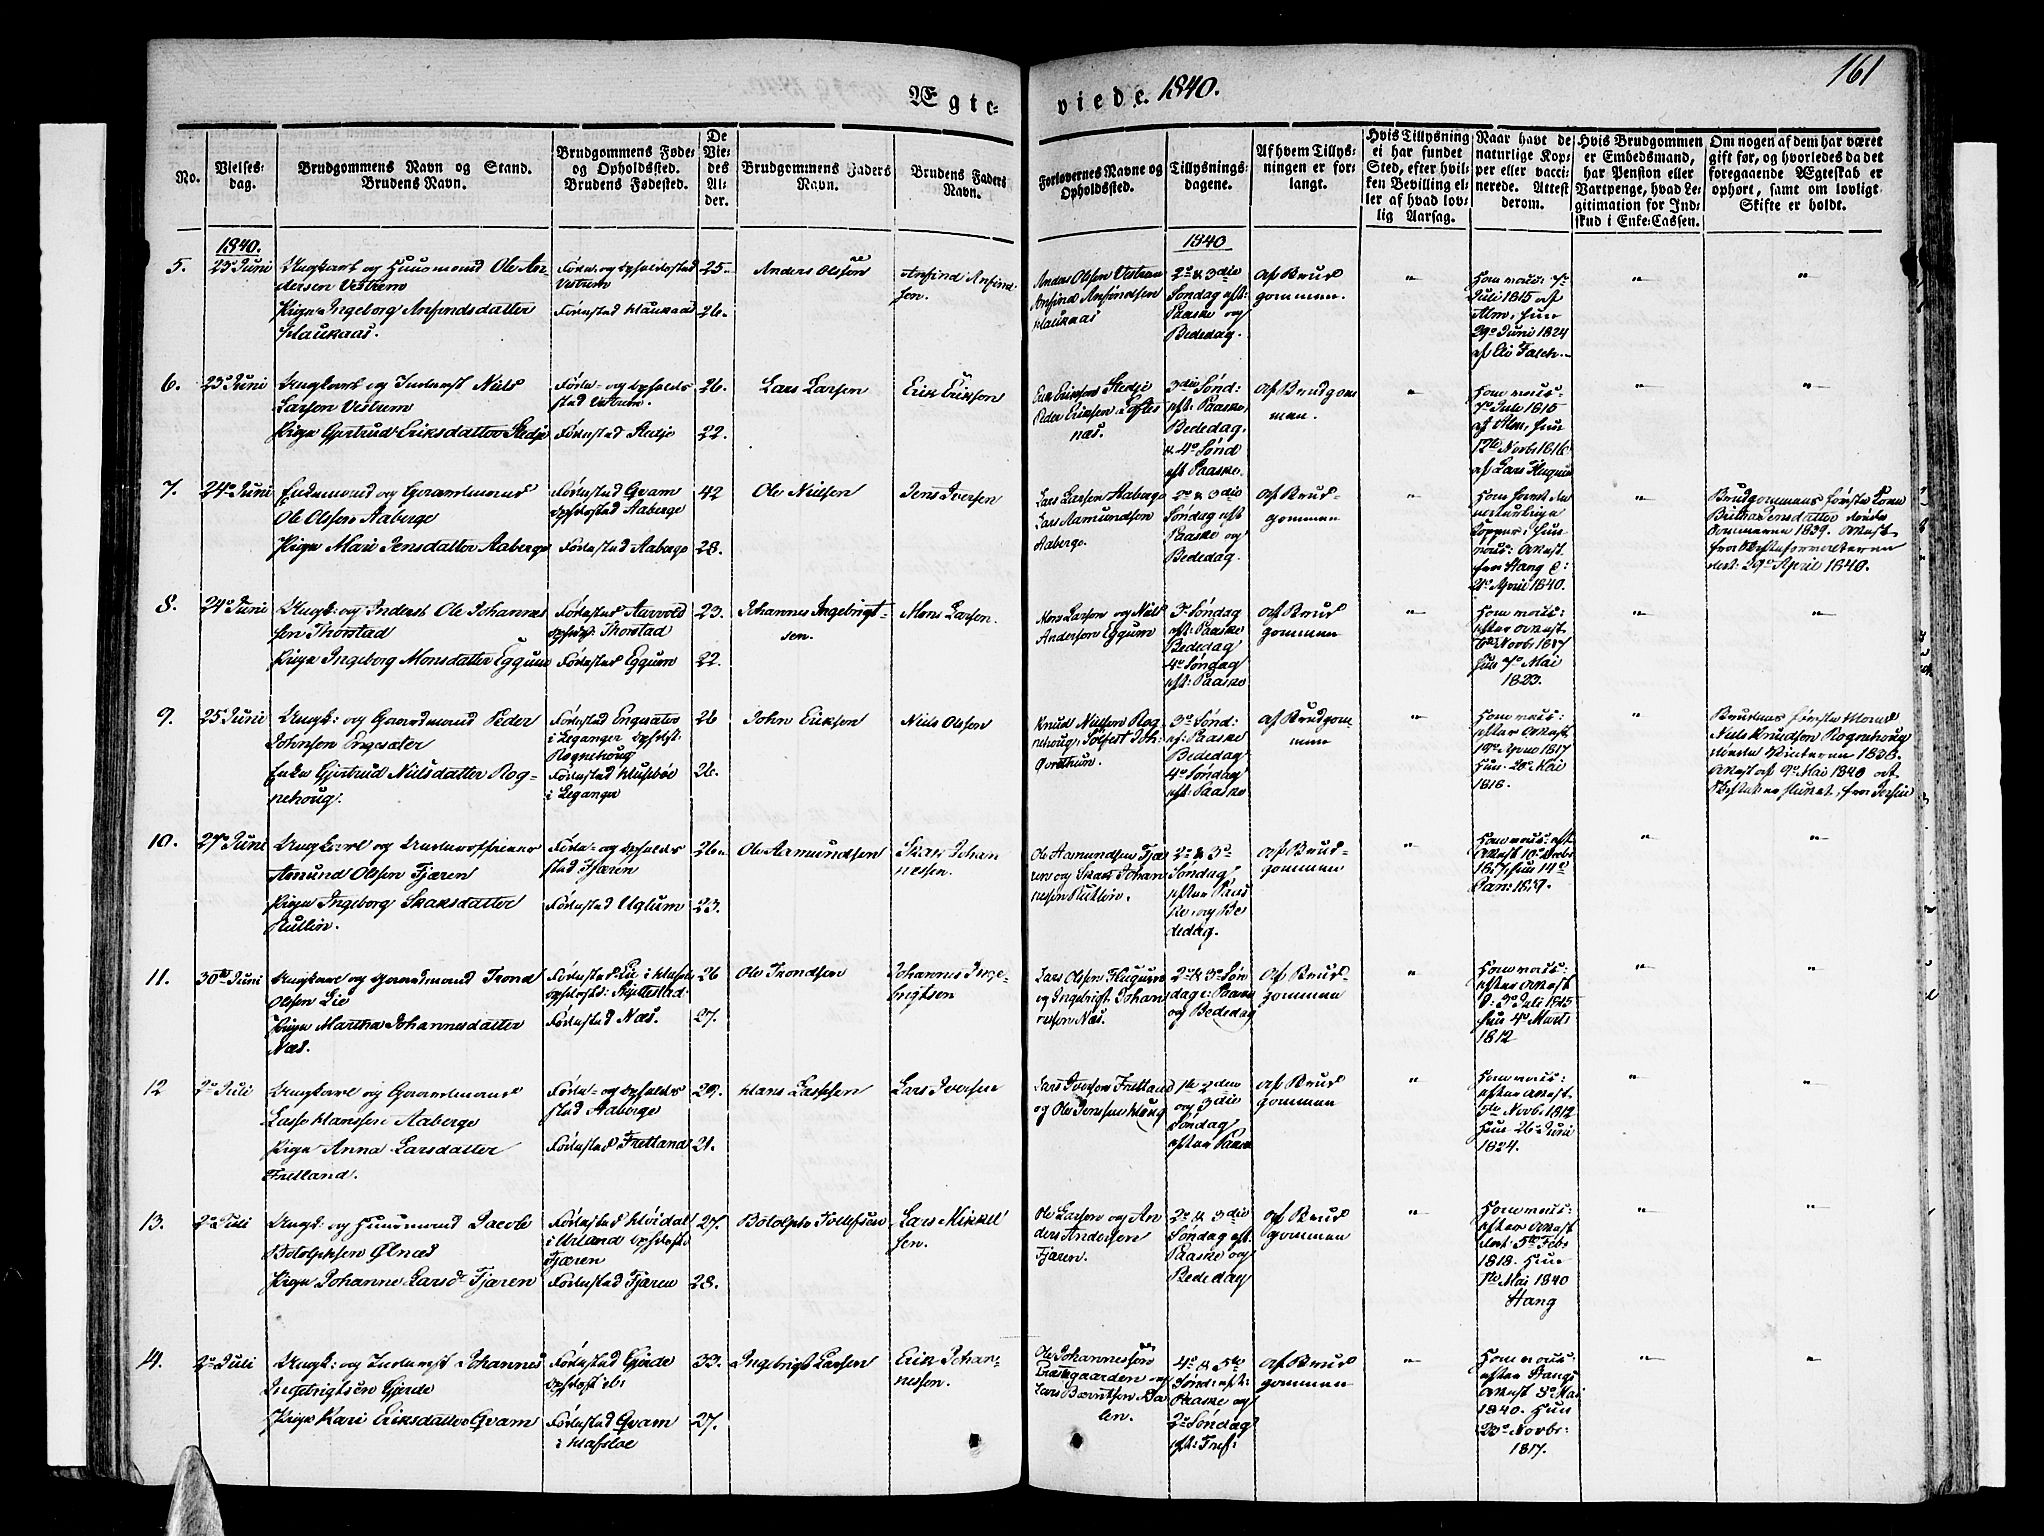 161
Ægte-
viede. 1840.
No.
Vielses-
dag.
Brudgommens Navn og Stand.
Brudens Navn.
Brudgommens Føde-
og Opholdssted.
Brudens Fødested.
De
Vie-
des
Al-
der.
Brudgommens Faders
Navn.
Brudens Faders
Navn.
Forlovernes Navne og
Opholdssted.
Tillysnings-
dagene.
Af hvem Tillys-
ningen er for-
langt.
Hvis Tillysning
ei har fundet
Sted, efter hvil-
ken Bevilling el-
ler af hvad lov-
lig Aarsag.
Naar havt de
naturlige Kop-
per eller vacci-
nerede. Attest
derom.
Hvis Brudgommen
er Embedsmand,
har Pension eller
Vartpenge, hvad Le-
gitimation for Ind-
skud i Enke-Cassen.
Om nogen af dem har været
gift før, og hvorledes da det
foregaaende Ægteskab er
ophørt, samt om lovligt
Skifte er holdt.
1840.
1840
5. 23de Juni Ungkarl og Huusmand Ole An-
dersen Vestrem
Pige Ingeborg Anfindsdatter
Haukaas.
Føde- og Opholdssted
Vestrem
Fødested Haukaas
25.
26.
Anders Olsen
Anfind Anfind-
sen.
Anders Olsen Vestrem
Anfind Anfindsen
Haukaas
2de & 3die
Søndag eft:
Paaske og
Bededag.
af Brud
gommen.
"
Ham vacc: 7de
Juli 1815 af
Alm, hun
29de Juni 1824
af Falch.
"
"
6. 23de Juni Ungkarl og Inderst Niels
Larsen Vestrem
Pige Gjertrud Eriksdatter Stedje
Føde- og Opholds
sted Vestrem.
Fødested Stedje
26.
22.
Lars Larsen
Erik Eriksen
Erik Eriksen Stedje
Peder Eriksen Loftes
næs.
3die Sønd:
eft: Paaske,
Bededag,
& 4de Sønd
eft Paaske.
af Brudgom
men.
"
Ham vacc:
7de Juli 1815
af Alm, hun
12te Novb: 1816
af Lars Flugum
"
"
7. 24de Juni Enkemand og Gaardmand
Ole Olsen Aaberge
Pige Mari Jensdatter Aaberge
Fødested Qvam
Opholdssted Aaberge
Fødested Aaberge
42
28.
Ole Nielsen
Jens Iversen
Lars Larsen Aaberge
Lars Aamundsen
Aaberge.
2de & 3die
Søndag eft
Paaske og
Bededag.
af Brud-
gommen
"
Ham havt de
naturlige
Kopper, hun
vacc: Attest
fra Stang
21de April 1840.
"
Brudgommens første Kone
Britha Jensdatter døde
Sommeren 1839. Attest
fra Skifteforvalteren
dat: 29de April 1840.
8. 24de Juni Ungk: og Inderst Ole Johannes
sen Thorstad
Pige Ingeborg Monsdatter Eggum
Fødested Aarvold
Opholdss: Thorstad
Fødested Eggum
23.
22.
Johannes Ingebrigt-
sen.
Mons Larsen.
Mons Larsen og Niels
Andersen Eggum
3de Søndag
eft: Paaske
Bededag
4de Søndag
eft: Paaske
af Brud
gommen
"
Ham vacc:
efter Attest
6te Novb: 1817
hun 7de Mai
1823.
"
"
9. 25de Juni Ungk: og Gaardmand Peder
Johnsen Engesæter
Enke Gjertrud Nielsdatter Rog-
nehoug.
Fødested Engesæter
i Leganger Opholdst:
Rognehoug
Fødested Husebøe
i Leganger
26
26.
John Eriksen
Niels Olsen
Knud Nielsen Rog-
nehoug, Solfest Joh:
Qvethum.
3de Sønd:
ef: Paaske
Bededag
4de Søndag
eft: Paaske
af Brudgom
men
"
Ham vacc:
efter Attest
1817
Hun 28de Mai
1818.
"
Brudens første Mand
Niels Knudsen Rognehoug
døde Vinteren 1838.
Attest af 9de Mai 1840 at
Skifte er sluttet, fra
10. 27de Juni Ungkarl og Underofficeer
Amund Olsen Fjæren
Pige Ingeborg Skaksdatter
Rutlin.
Føde- og Opholds
sted Fjæren
Fødested Uglum
26.
23.
Ole Aamundsen
Skak Johan
nessen.
Ole Aamundsen Fjæ
ren og Skak Johan
nessen Rutlin.
2de & 3de
Søndag
efter Paas
ke, og Be
dedag.
af Brud-
gommen
"
Ham vacc: eft
Attest
1817, hun 14de
Jan: 1819.
"
"
11. 30te Juni Ungkarl og Gaardmand Trond
Olsen Lie
Pige Martha Johannesdatter
Næs.
Fødested Lie i Hafslo
Opholdsst: Skjeldestad
Fødested Næs.
26
27.
Ole Trondsen
Johannes Inge-
brigtsen
Lars Olsen Flugum
og Ingebrigt Johan
nessen Næs.
2de & 3de Søn
dage: Paaske
og Bededag
af Brud-
gommen
"
Ham vacc:
efter Attest
3de Juli 1815
hun 4de Marts
1812
"
"
12 2de Juli Ungkarl og Gaardmand
Lasse Hanssen Aaberge
Pige Anna Larsdatter
Fretland.
Føde- og Opholds
sted Aaberge
Fødested Fretland
29.
21.
Hans Lassesen
Lars Iversen
Lars Iversen Fretland
og Ole Jenssen Houg
1ste 2den
og 3die
Søndag
efter Paaske
af Brud
gommen
"
Ham vacc:
efter Attest
5te Novb: 1812
Hun 26de Juni
1824.
"
"
13. 2de Juli Ungk: og Huusmand Jacob
Botolphsen Ølnæs
Pige Johanne Larsd: Fjæren
Fødested Høidal
i Urland Opholdsst:
Fjæren
Fødested Fjæren
27.
28.
Botolph Tollefsen
Lars Mikkel
sen.
Ole Larsen og An
ders Andersen
Fjæren.
2de & 3die
Søndag eft.
Paaske og
Bededag
af Brud
gommen
"
Ham vacc:
efter Attest
dat: 5te Feb:
1818. Hun
1ste Mai 1840
Stang
"
"
14. 2de Juli Ungk: og Inderst Johannes
Ingebrigtsen Gjerde
Pige Kari Eriksdatter Qvam
Fødested Gjerde
Opholdsst: ib:
Fødested Qvam
i Hafsloe
33.
27.
Ingebrigt Larsen
Erik Johan-
nessen.
Ole Johannessen
Præstgaarden og
Lars Berntsen Da
len.
4de & 5te
Sønd: eft:
Paaske og
2de Søndag
eft: Tref:
af Brud
gommen
"
Ham vacc:
efter Stangs
Attest 8de Mai
1840. Hun
23de Novb:
1817.
"
"